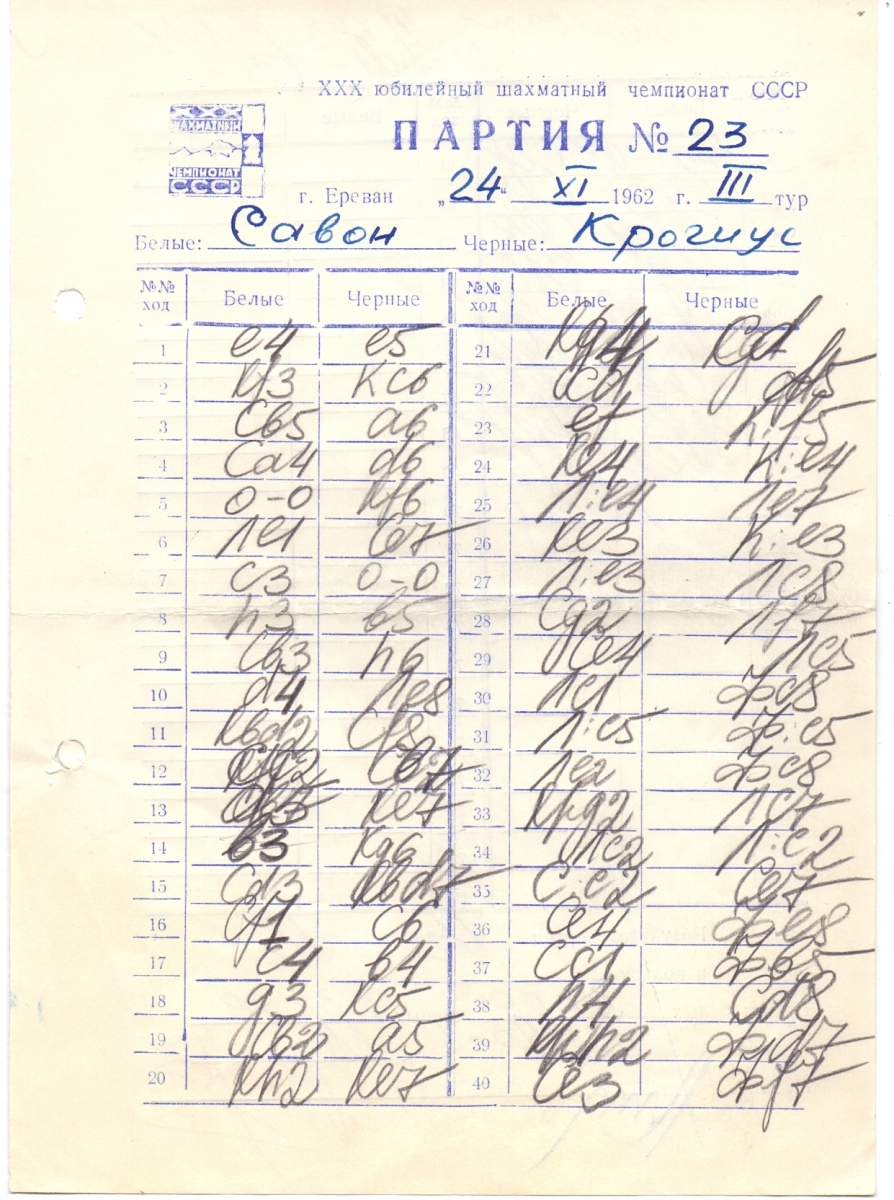 XXX юбилейный шахматный чемпионат СССР
ШАХМАТНЫЙ
ЧЕМПИОНАТ
СССР
ПАРТИЯ № 23
г. Ереван „24“ XI 1962 г. III тур
Белые: Савон Черные: Крогиус
№№ ход Белые Черные №№ ход Белые Черные
1 e4 e5 21 Кg4
2 Кf3 Кc6 22 f5
3 Сb5 a6 23 К:f5
4 Сa4 d6 24 Кe4 К:e4
5 0-0 Кf6 25 Л:e4 Лe7
6 Лe1 Сe7 26 Кe3 К:e3
7 c3 0-0 27 Л:e3 Лc8
8 h3 b5 28 Сg2 Лf7
9 Сb3 h6 29 Сe4 Лc5
10 d4 Лe8 30 Лc1 Фc8
11 Кbd2 Сf8 31 Л:c5 Ф:c5
12 Сc2 Сb7 32 Лe2 Фc8
13 Кe7 33 Крg2 Лc7
14 b3 Кg6 34 Лc2 Л:c2
15 Сd3 Кbd7 35 С:c2 Сe7
16 Сf1 c6 36 Сe4 Фe8
17 c4 b4 37 Сc1 Фb5
18 g3 Кc5 38 h4 Сd8
19 Сb2 a5 39 Крh2 Фd7
20 Кh2 Кe7 40 Сe3 Фf7